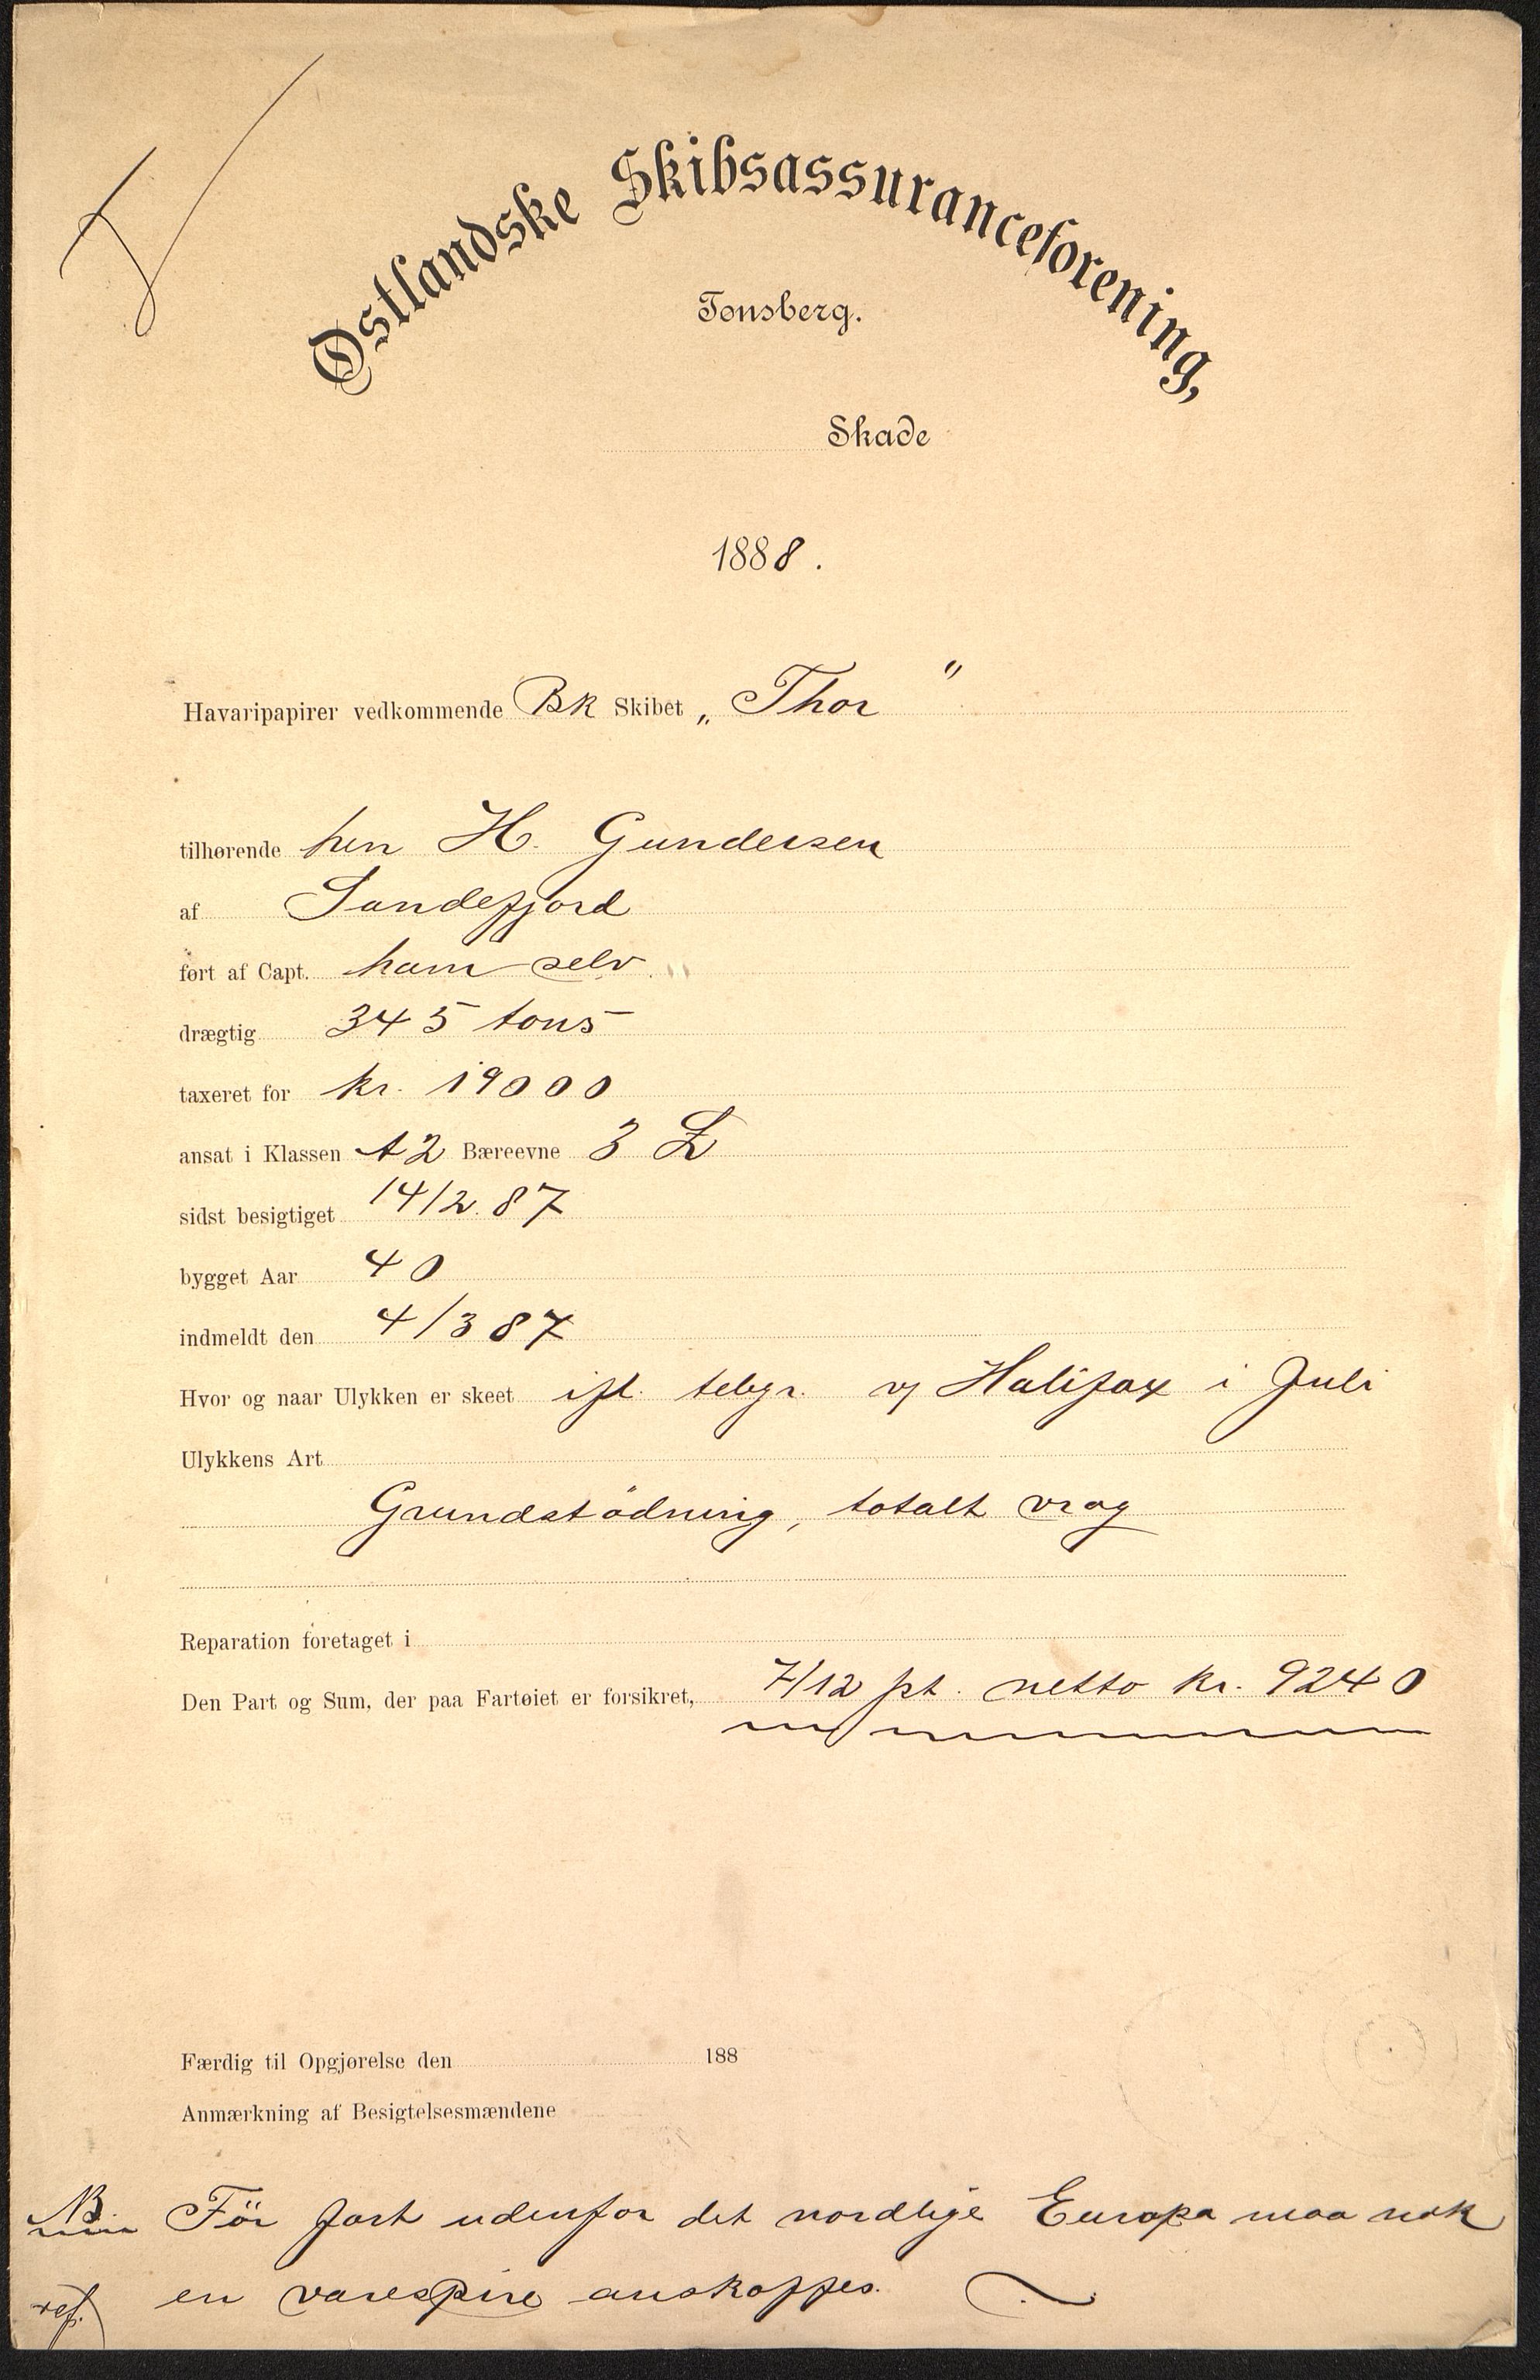 Østlandske Skibsassuranceforening,
Tønsberg.
Skade
1888.
Havaripapirer vedkommende Bk Skibet „Thor"
tilhørende herr H. Gundersen
af Sandefjord
ført af Capt. ham selv
drægtig 345 tons
taxeret for kr. 19000
ansat i Klassen A2 Bæreevne 3 Z
sidst besigtiget 14/2 87
bygget Aar 40
indmeldt den 4/3 87
Hvor og naar Ulykken er skeet ifl. telegr. v/ Halifax i Juli
Ulykkens Art
Grundstödning, totalt vrag
Reparation foretaget i
Den Part og Sum, der paa Fartøiet er forsikret, 7/12 pt. netto kr. 9240
Færdig til Opgjørelse den 188
Anmærkning af Besigtelsesmændene
NB. För fart udenfor det nordlige Europa maa nok
en varespire anskaffes.
ref.